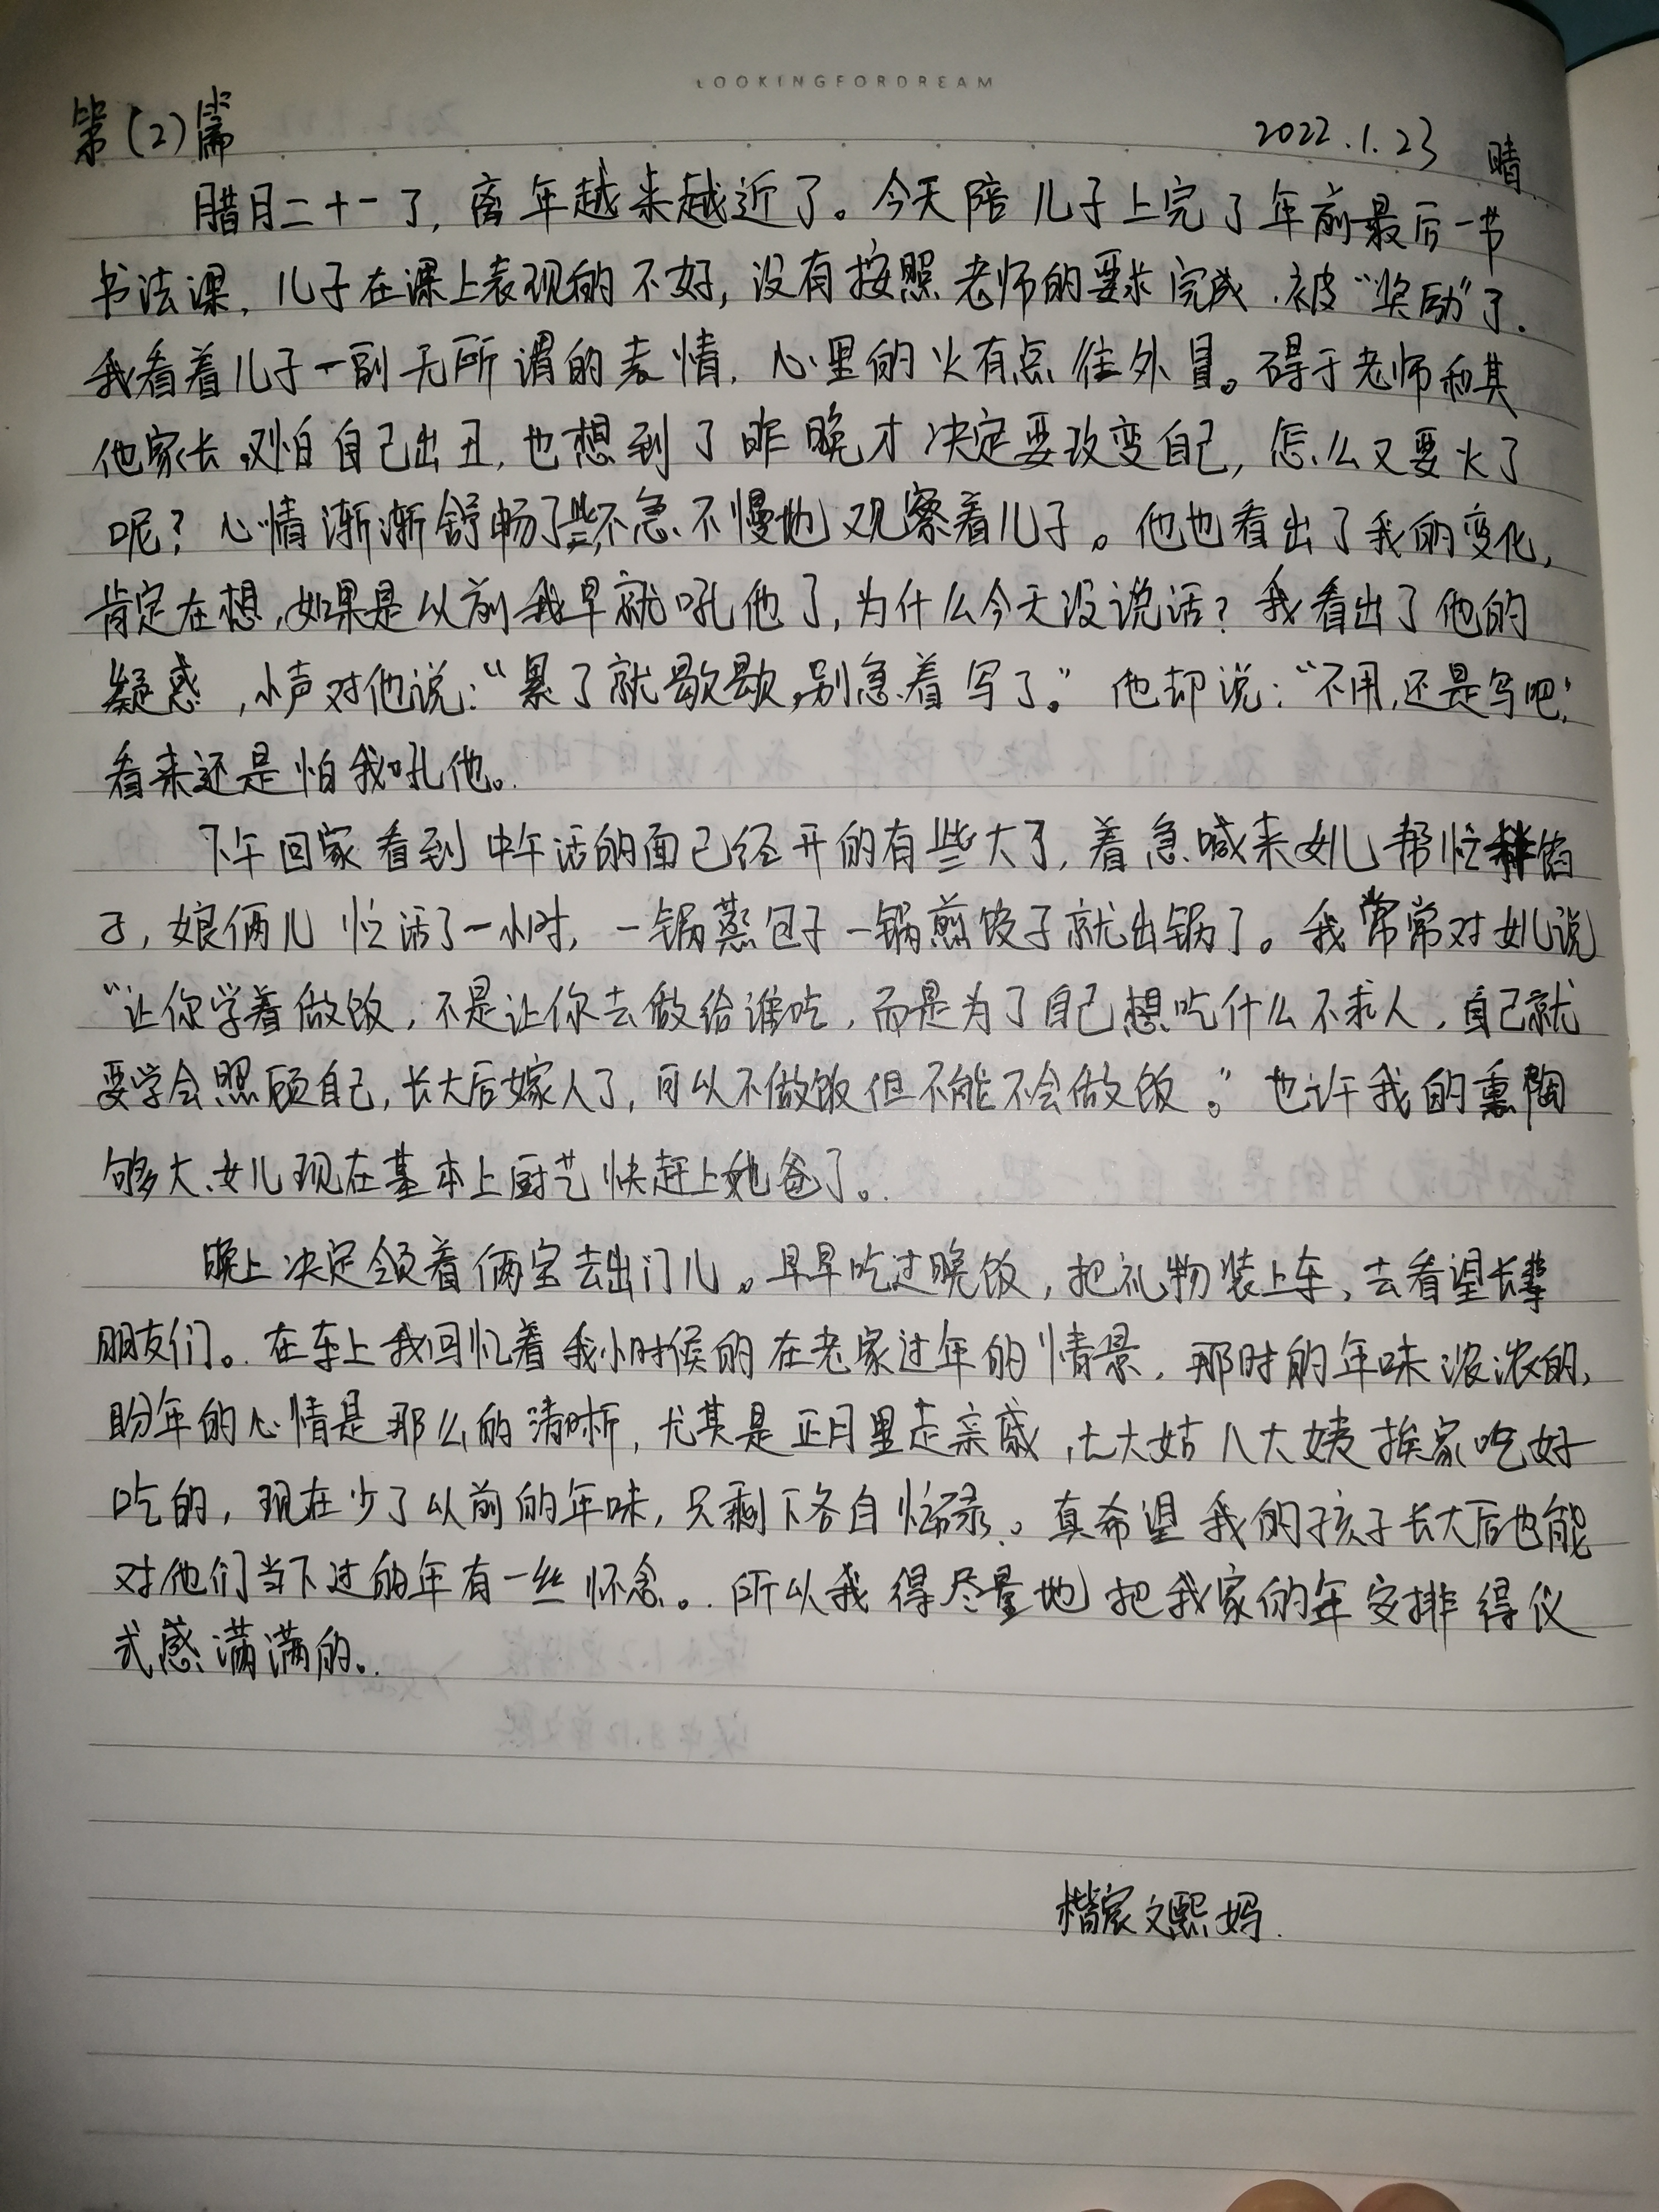 LOOKINGFORDREAM
第(2)篇
2022.1.23 晴
腊月二十一了,离年越来越近了。今天陪儿子上完了年前最后一节
书法课,儿子在课上表现的不好,没有按照老师的要求完成,被“奖励”了.
我看着儿子一副无所谓的表情,心里的火有点往外冒。碍于老师和其
他家长,又怕自己出丑,也想到了昨晚才决定要改变自己,怎么又要火了
呢?心情渐渐舒畅了些,不急不慢地观察着儿子。他也看出了我的变化,
肯定在想,如果是以前我早就吼他了,为什么今天没说话?我看出了他的
疑惑,小声对他说:“累了就歇歇,别急着写了。”他却说:“不用,还是写吧,”
看来还是怕我吼他。
下午回家看到中午活的面已经开的有些大了,着急喊来女儿帮忙拌馅
子,娘俩儿忙活了一小时,一锅蒸包子一锅煎饺子就出锅了。我常常对女儿说
“让你学着做饭,不是让你去做给谁吃,而是为了自己想吃什么不求人,自己就
要学会照顾自己,长大后嫁人了,可以不做饭但不能不会做饭。”也许我的熏陶
够大,女儿现在基本上厨艺快赶上她爸了。
晚上决定领着俩宝去出门儿。早早吃过晚饭,把礼物装上车,去看望长辈
朋友们。在车上我回忆着我小时候的在老家过年的情景,那时的年味浓浓的,
盼年的心情是那么的清晰,尤其是正月里走亲戚,七大姑八大姨挨家吃好
吃的,现在少了以前的年味,只剩下各自忙碌。真希望我的孩子长大后也能
对他们当下过的年有一丝怀念。所以我得尽量地把我家的年安排得仪
式感满满的。
楷宸文熙妈.